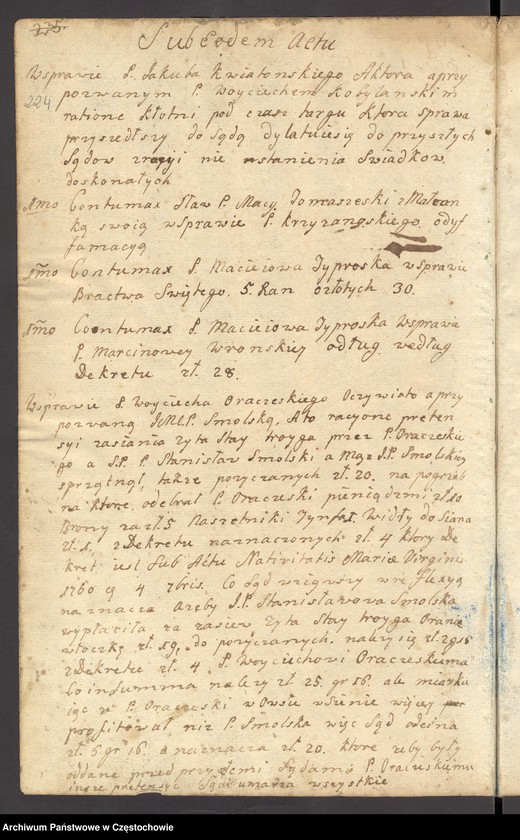 235.
Sub Eodem Actu
Wsprawie S. Jakuba Kwiatonskiego Aktora a przy
224 pozwanym P. Woyciechem Kobylanskim
ratione Kłotni pod czasz targu Ktora sprawa
przyszedłszy do Sądu dylatuiesię do przyszłych
Sądow zracyi nie ustanienia Swiadkow
doskonałych
Contumax Staw P. Macij Tomaszeski zMałzon
ką swoią wSprawie P. Krzyzanoskiego odyf
famacyą
Contumax S. Macieiowa Typroska wsprawie
Bractwa Swiętego 5. Ran ozłotych 30.
Contumax S. Macieiowa Typroska Wsprawie
P. Marcinowey Wronskiey odług według
Dekretu zł. 28.
Wsprawie S. Woyciecha Oraczeskiego Oczywisto a przy
pozwaną JMCP. Smolską, Ato racyone preten
syi zasiania zyta Stay troyga przez P. Oraczeskie
go a S.P. P. Stanisław Smolski a Mąz S.P. Smolskiey
sprzątnął, takze pozyczanych zł. 20. na pogrzeb
na ktore odebrał P. Oraczeski pieniądzmi zł. 10
Brony za zł. 5 Naszelniki Tynfa 1. Widły do Siana
zł. 1. zDekretu naznaczonych zł. 4 ktory De
kret iest Sub Actu Nativitatis Mariæ Virginis
1760 4 7bris. Co Sąd wziąwszy w reflexyą
naznacza azeby S.P. Stanisławowa Smolska
wypłaciła za zasiew zyta Stay troyga Oranie
włoczkę zł. 19. do pozyczanych nalezy się zł.
zDekretu zł. 4 S. Woyciechowi Oraczeskiemu
Co insumma nalezy zł. 25. gr 16. ale miarku
iąc ze P. Oraczeski w Owsie wSienie więcy
profitował niz P. Smolska więc Sąd odcina
zł. 5 gr 16. a naznacza zł. 20. ktore zeby były
oddane przed przyszłemi Sądami P. Oraczeskiemu
insze pretensye Sąd umarza wszystkie
Archiwum Państwowe w Częstochowie